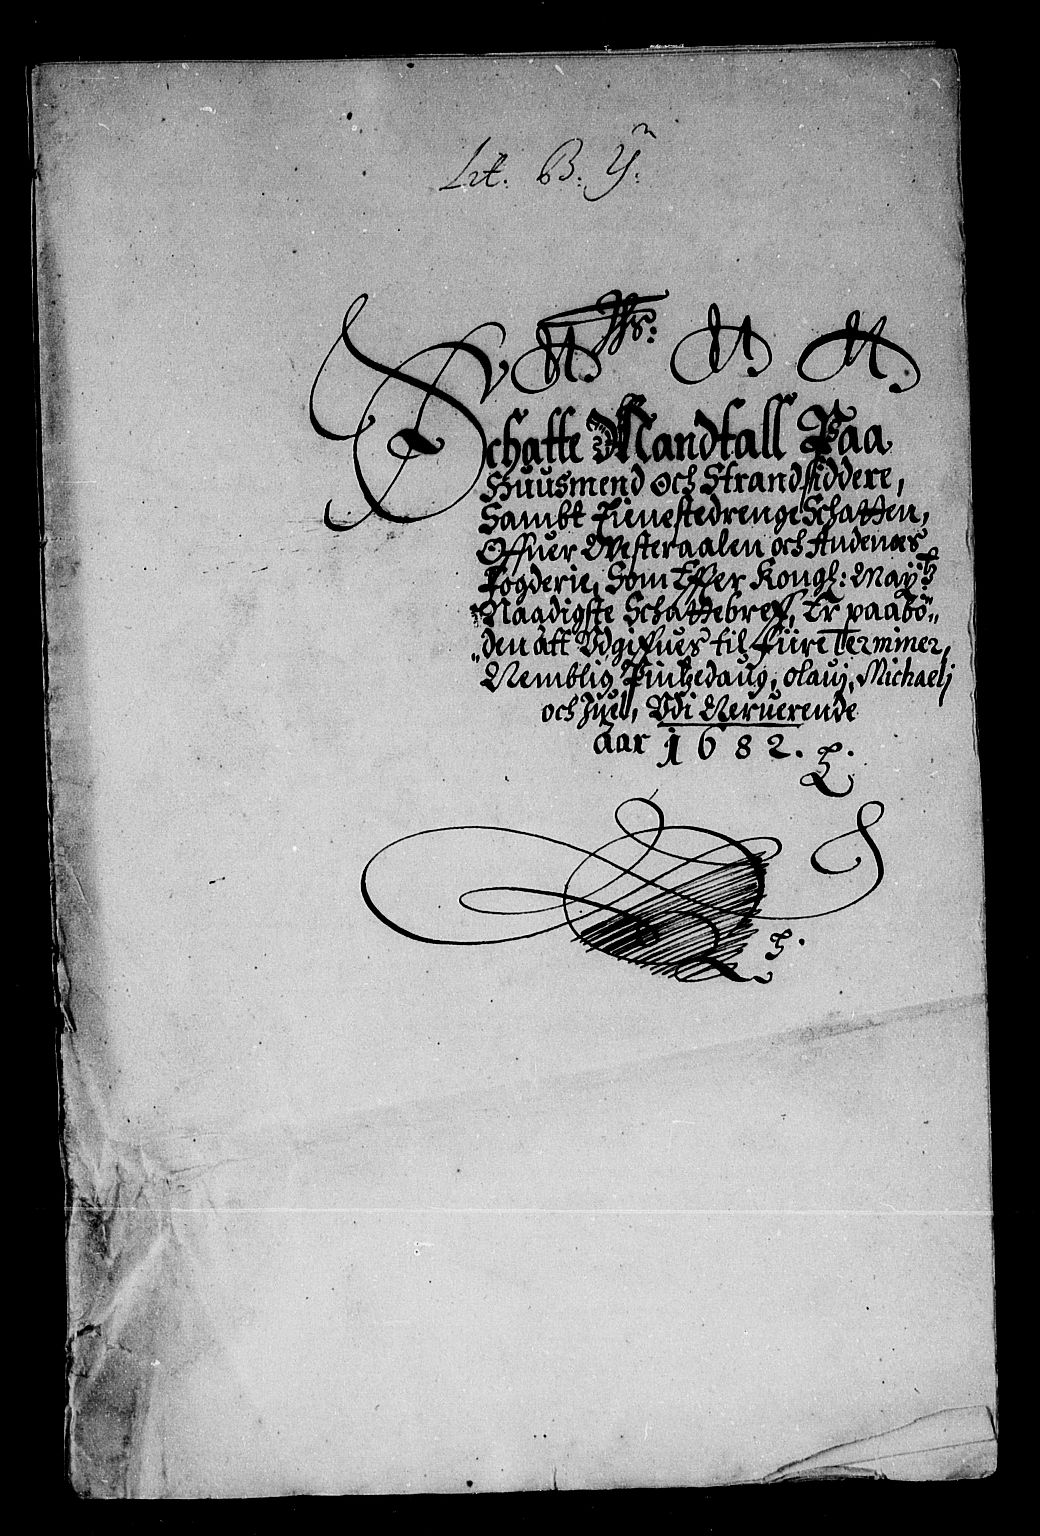 Lit. B. ÿ:
Jhs:
N. N. N.
Schatte Mandtall Paa
Huusmend och Strandsiddere,
Sambt Tienestedrenge Schatten,
Offuer Westeraalen och Andenæs
Fogderie, Som Effter Kongl: Mayᵗᶻ:
Naadigste Schattebreff, Er paabö„
„den att Vdgiffues til fiire Terminer,
Nemblig Pintzedaug, olauj, Michaelj
och Juel, Vdi Nerverende
Aar 1682.